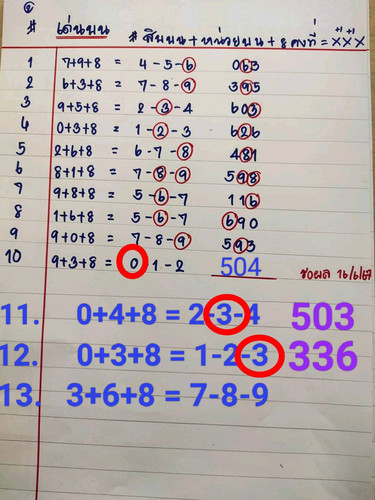 +1 +1
# เด่นบน # สิบบน + หน่วยบน + 8 คงที่ = XXX
1 7+9+8 = 4-5-6 063
2 6+3+8 = 7-8-9 395
3 9+5+8 = 2-3-4 603
4 0+3+8 = 1-2-3 626
5 2+6+8 = 6-7-8 481
6 8+1+8 = 7-8-9 598
7 9+8+8 = 5-6-7 116
8 1+6+8 = 5-6-7 690
9 9+0+8 = 7-8-9 593
10 9+3+8 = 0 1-2 504 ขอผล 16/6/67
11. 0+4+8 = 2-3-4 503
12. 0+3+8 = 1-2-3 336
13. 3+6+8 = 7-8-9